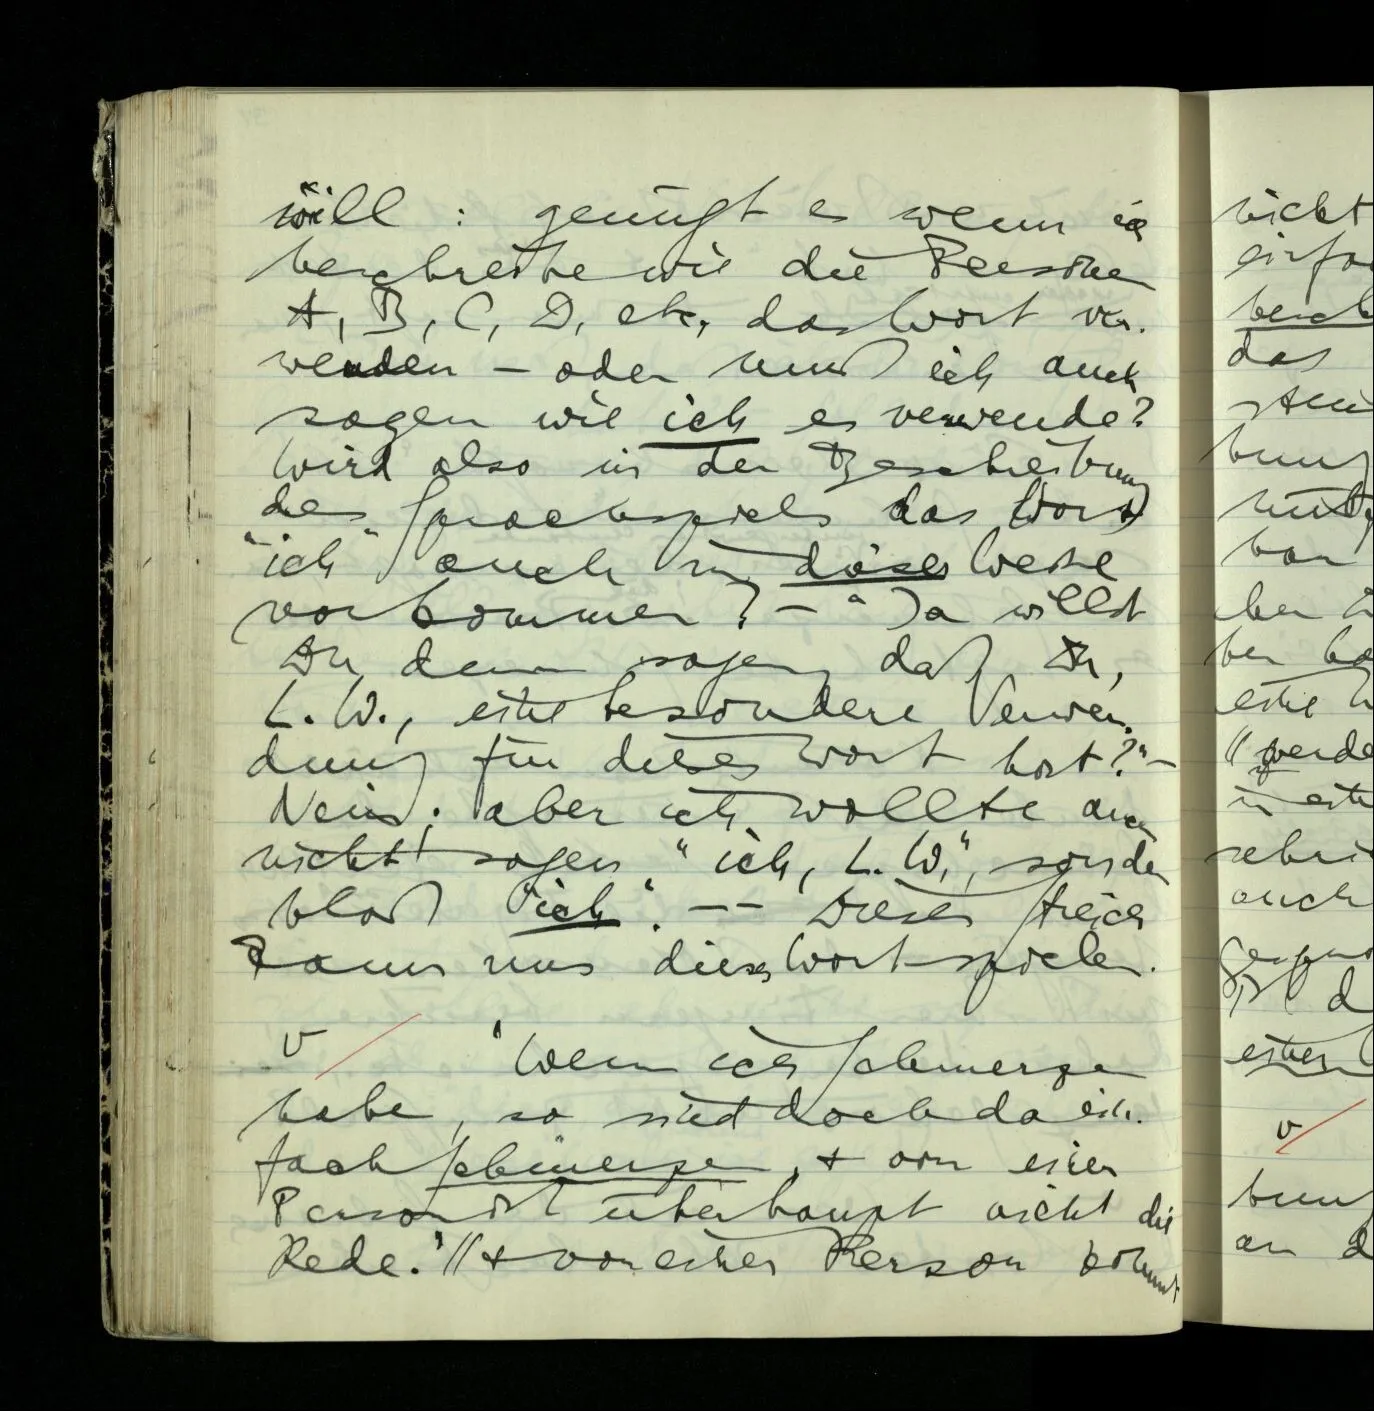 will : genügt es wenn ich
beschreibe wie die Personen
A, B, C, D, etc, das Wort ver-
wenden – oder muß ich auch
sagen wie ich es verwende?
Wird also in der Beschreibung
des Sprachspiels das Wort
"ich" auch in dieser Weise
vorkommen? – "Ja willst
Du denn sagen daß Du,
L. W., eine besondere Verwen-
dung für dieses Wort hast?" –
Nein; aber ich wollte auch
nicht sagen "ich, L. W.", sondern
bloß "ich". –– Diesen Streich
kann uns dieses Wort spielen.
v / 'Wenn ich Schmerzen
habe, so sind doch da ein-
fach Schmerzen, & von einer
Person ist überhaupt nicht die
Rede.' // & von einer Person kommt
nicht
das
auch
v /
an d